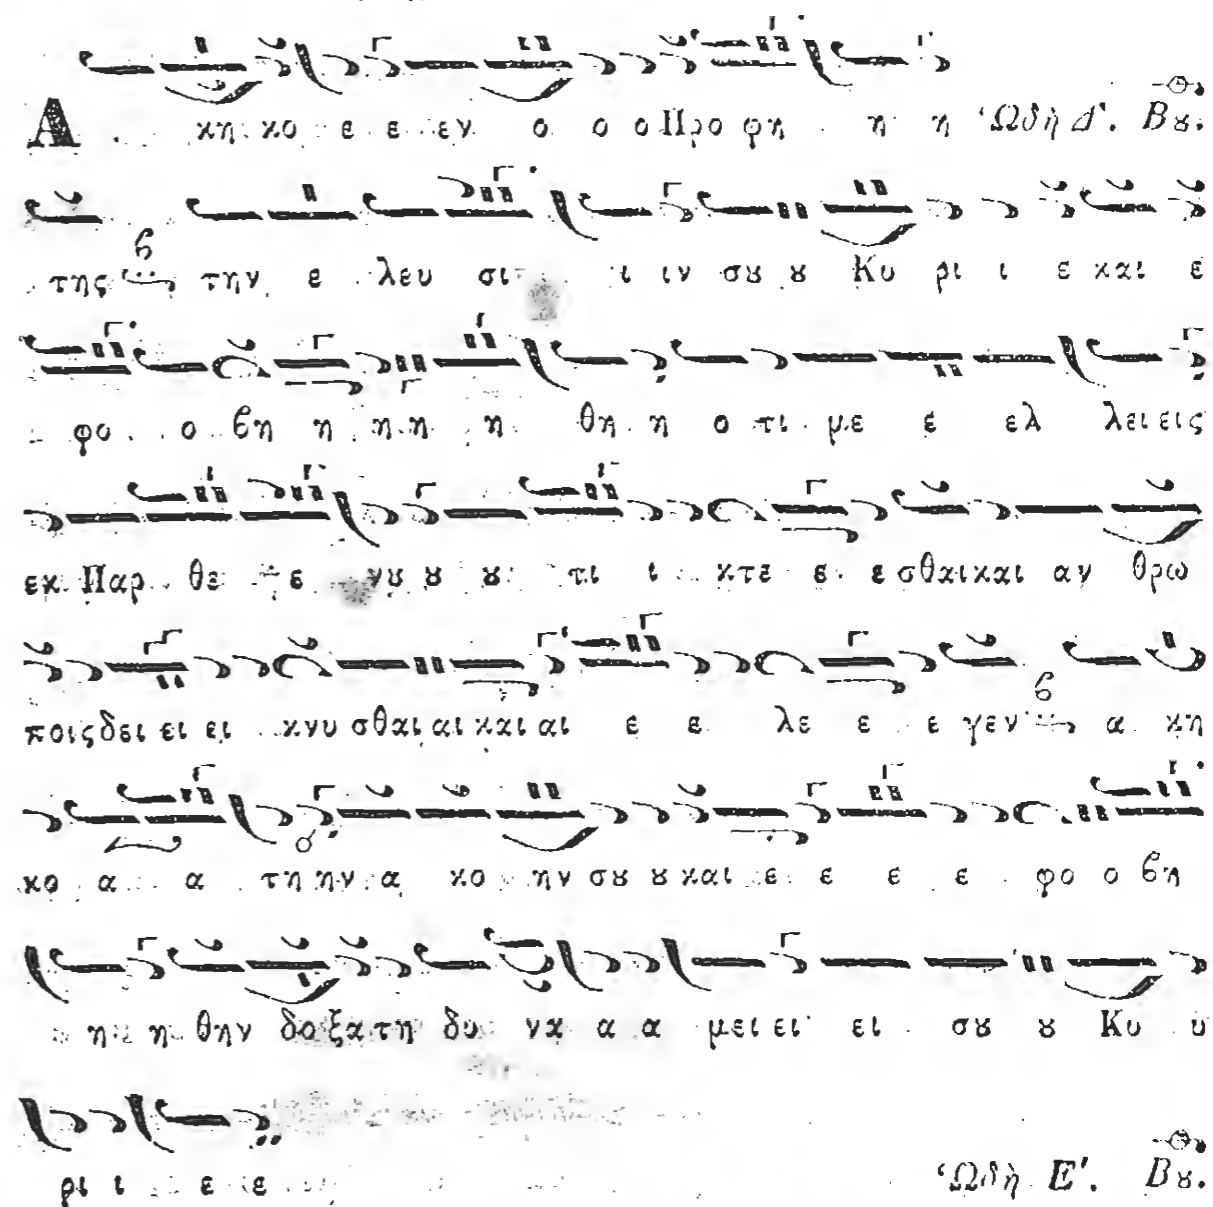 Α κη κο ε ε εν ο ο ο Προ φη η η Ὠδὴ Δ'. Βȣ.
της την ε λευ σι ι ιν σȣ ȣ Κυ ρι ι ε και ε
φο ο βη η η η η θη η ο τι με ε ελ λει εις
εκ Παρ θε ε νȣ ȣ ȣ τι ι κτε ε εσθαι και αν θρω
ποις δει ει ει κνυ σθαι αι και αι ε ε λε ε ε γεν α κη
κο α α τη ην α κο ην σȣ ȣ και ε ε ε ε φο ο βη
η η θην δο ξα τη δυ να α α μει ει ει σȣ ȣ Κυ υ
ρι ι ε ε Ὠδὴ Ε'. Βȣ.